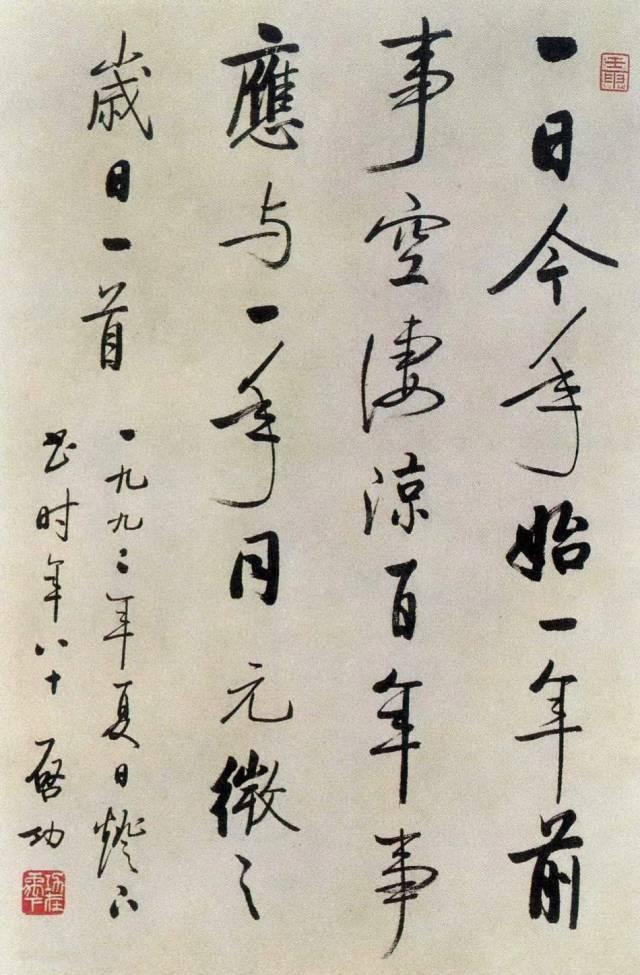 一日今年始一年前
事空凄涼百年事
應与一年同元微之
歲日一首
一九九二年夏日燈下
书时年八十啓功